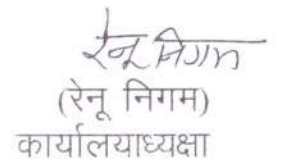 रेनू निगम
(रेनू निगम)
कार्यालयाध्यक्षा